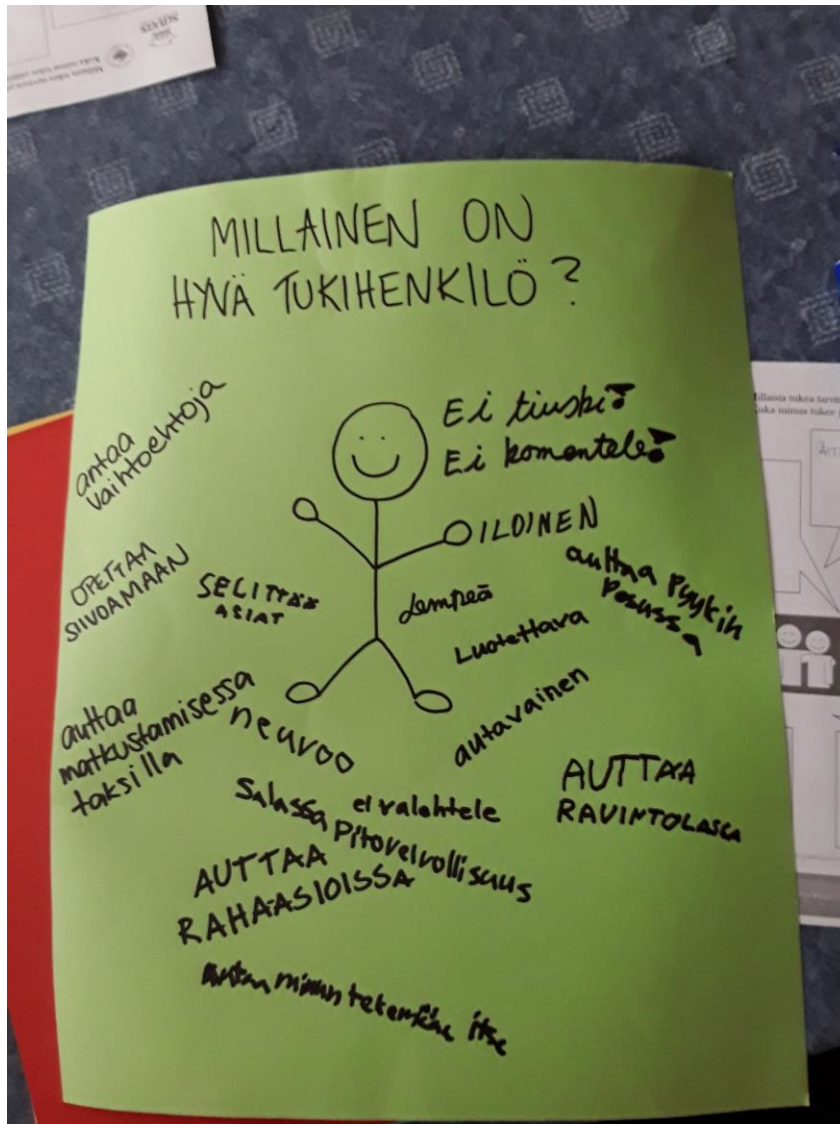 MILLAINEN ON
HYVÄ TUKIHENKILÖ?
antaa
vaihtoehtoja
Ei tiuski!
Ei komentele!
ILOINEN
OPETTAA
SIIVOAMAAN
SELITTÄÄ
ASIAT
Lempeä
auttaa Pyykin
Pesussa
Luotettava
auttaa
matkustamisessa
taksilla
neuvoo
autavainen
AUTTAA
RAVINTOLASSA
ei valehtele
Salassa
Pitovelvollisuus
AUTTAA
RAHAASIOISSA
Antaa minun tehdä itse